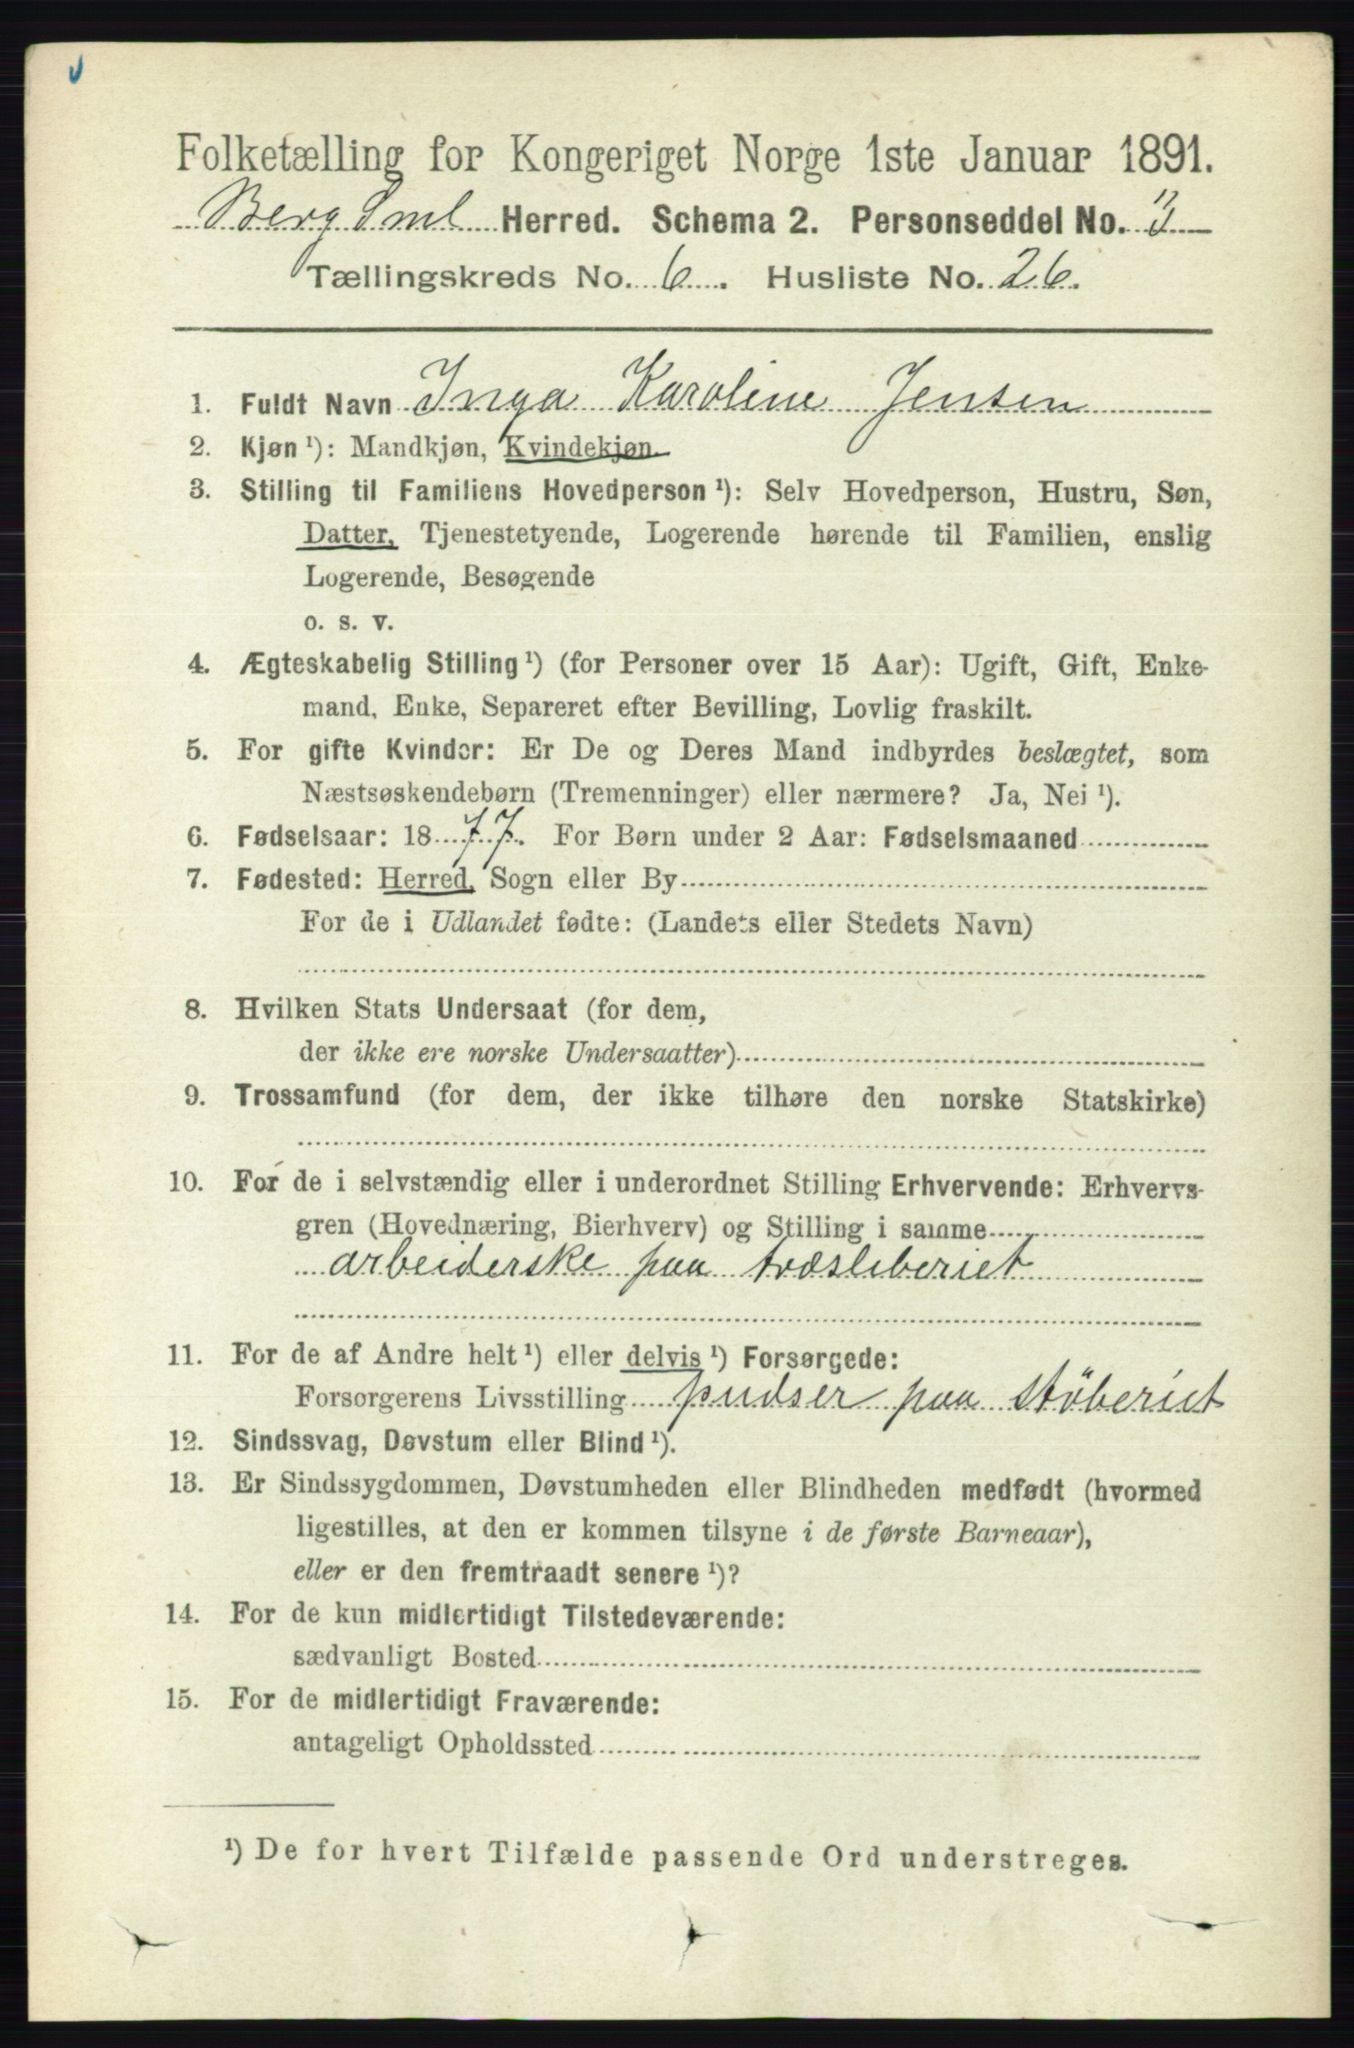 Folketælling for Kongeriget Norge 1ste Januar 1891.
Berg Sml Herred. Schema 2. Personseddel No. 3
Tællingskreds No. 6. Husliste No. 26.
1. Fuldt Navn Inga Karoline Jensen
2. Kjøn ¹): Mandkjøn, Kvindekjøn.
3. Stilling til Familiens Hovedperson ¹): Selv Hovedperson, Hustru, Søn,
Datter, Tjenestetyende, Logerende hørende til Familien, enslig
Logerende, Besøgende
o. s. v.
4. Ægteskabelig Stilling ¹) (for Personer over 15 Aar): Ugift, Gift, Enke-
mand, Enke, Separeret efter Bevilling, Lovlig fraskilt.
5. For gifte Kvinder: Er De og Deres Mand indbyrdes beslægtet, som
Næstsøskendebørn (Tremenninger) eller nærmere? Ja, Nei ¹).
6. Fødselsaar: 1877. For Børn under 2 Aar: Fødselsmaaned
7. Fødested: Herred, Sogn eller By
For de i Udlandet fødte: (Landets eller Stedets Navn)
8. Hvilken Stats Undersaat (for dem,
der ikke ere norske Undersaatter)
9. Trossamfund (for dem, der ikke tilhøre den norske Statskirke)
10. For de i selvstændig eller i underordnet Stilling Erhvervende: Erhvervs-
gren (Hovednæring, Bierhverv) og Stilling i samme
arbeiderske paa træsliberiet
11. For de af Andre helt ¹) eller delvis ¹) Forsørgede:
Forsørgerens Livsstilling pudser paa støberiet
12. Sindssvag, Døvstum eller Blind ¹).
13. Er Sindssygdommen, Døvstumheden eller Blindheden medfødt (hvormed
ligestilles, at den er kommen tilsyne i de første Barneaar),
eller er den fremtraadt senere ¹)?
14. For de kun midlertidigt Tilstedeværende:
sædvanligt Bosted
15. For de midlertidigt Fraværende:
antageligt Opholdssted
¹) De for hvert Tilfælde passende Ord understreges.